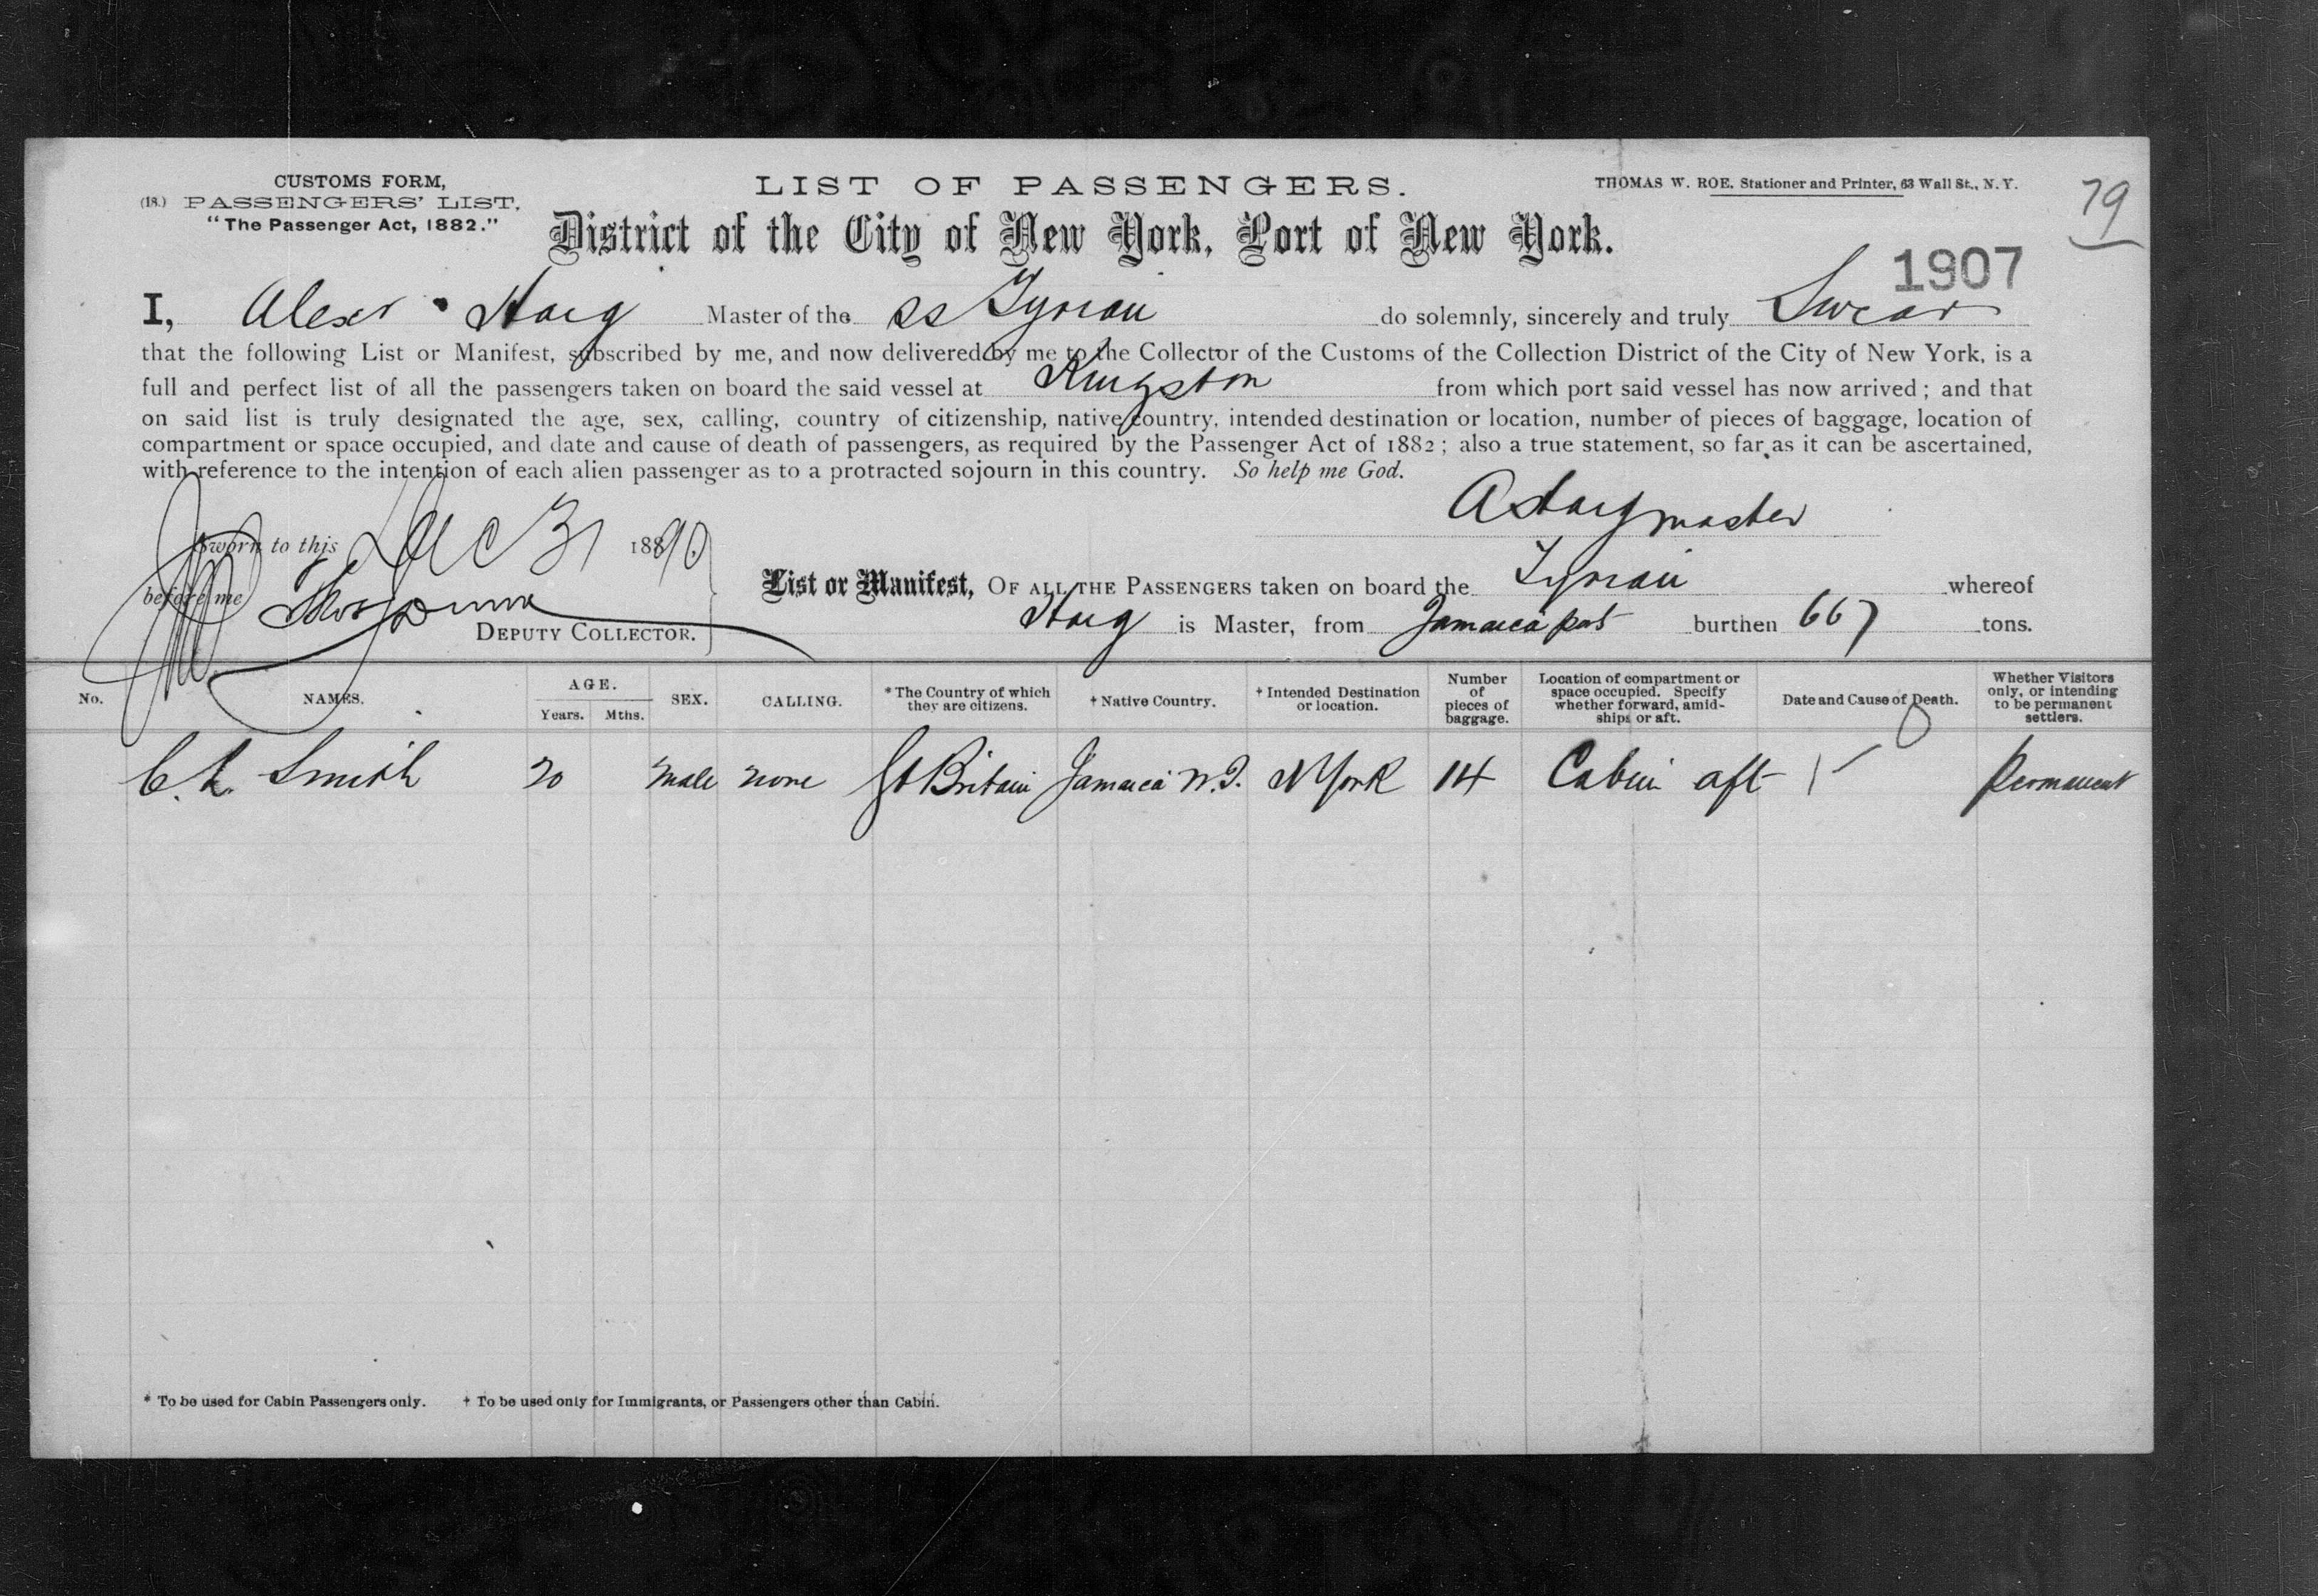 CUSTOMS FORM,
(18.) PASSENGERS' LIST.
"The Passenger Act, 1882."
LIST OF PASSENGERS.
THOMAS W. ROE, Stationer and Printer, 63 Wall St., N.Y.
79
District of the City of New York, Port of New York.
1907
I, Alexr Haig Master of the SS Tyrian do solemnly, sincerely and truly Swear
that the following List or Manifest, subscribed by me, and now delivered by me to the Collector of the Customs of the Collection District of the City of New York, is a
full and perfect list of all the passengers taken on board the said vessel at Kingston from which port said vessel has now arrived; and that
on said list is truly designated the age, sex, calling, country of citizenship, native country, intended destination or location, number of pieces of baggage, location of
compartment or space occupied, and date and cause of death of passengers, as required by the Passenger Act of 1882; also a true statement, so far as it can be ascertained,
with reference to the intention of each alien passenger as to a protracted sojourn in this country. So help me God.
A Haig master
Sworn to this Dec 31 1890.
before me Thos Dunn
DEPUTY COLLECTOR.
List or Manifest, OF ALL THE PASSENGERS taken on board the Tyrian whereof
Haig is Master, from Jamaica port burthen 667 tons.
No. NAMES. AGE. Years. Mths. SEX. CALLING. * The Country of which they are citizens. † Native Country. † Intended Destination or location. Number of pieces of baggage. Location of compartment or space occupied. Specify whether forward, amidships or aft. Date and Cause of Death. Whether Visitors only, or intending to be permanent settlers.
C. L. Smith 20 male none Gt Britain Jamaica W.I. N York 14 Cabin aft Permanent
* To be used for Cabin Passengers only. † To be used only for Immigrants, or Passengers other than Cabin.